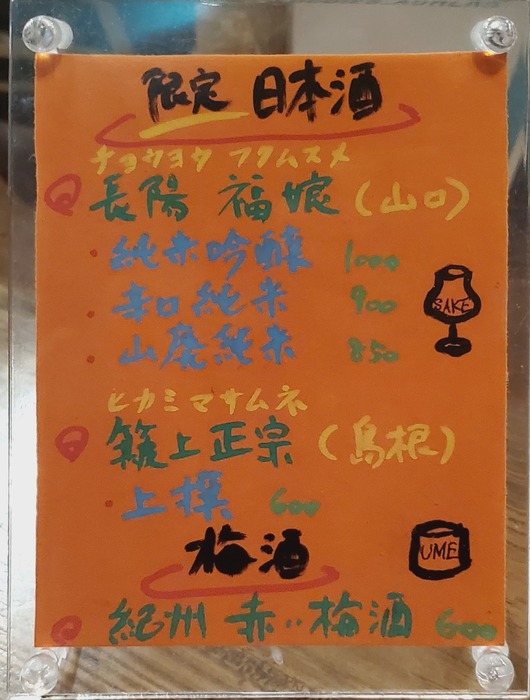 限定 日本酒
チョウヨウ フクムスメ
長陽 福娘 (山口)
・純米吟醸 1000
・辛口純米 900
・山廃純米 850
SAKE
ヒカミマサムネ
簸上正宗 (島根)
・上撰 600
梅酒
UME
紀州 赤い梅酒 600